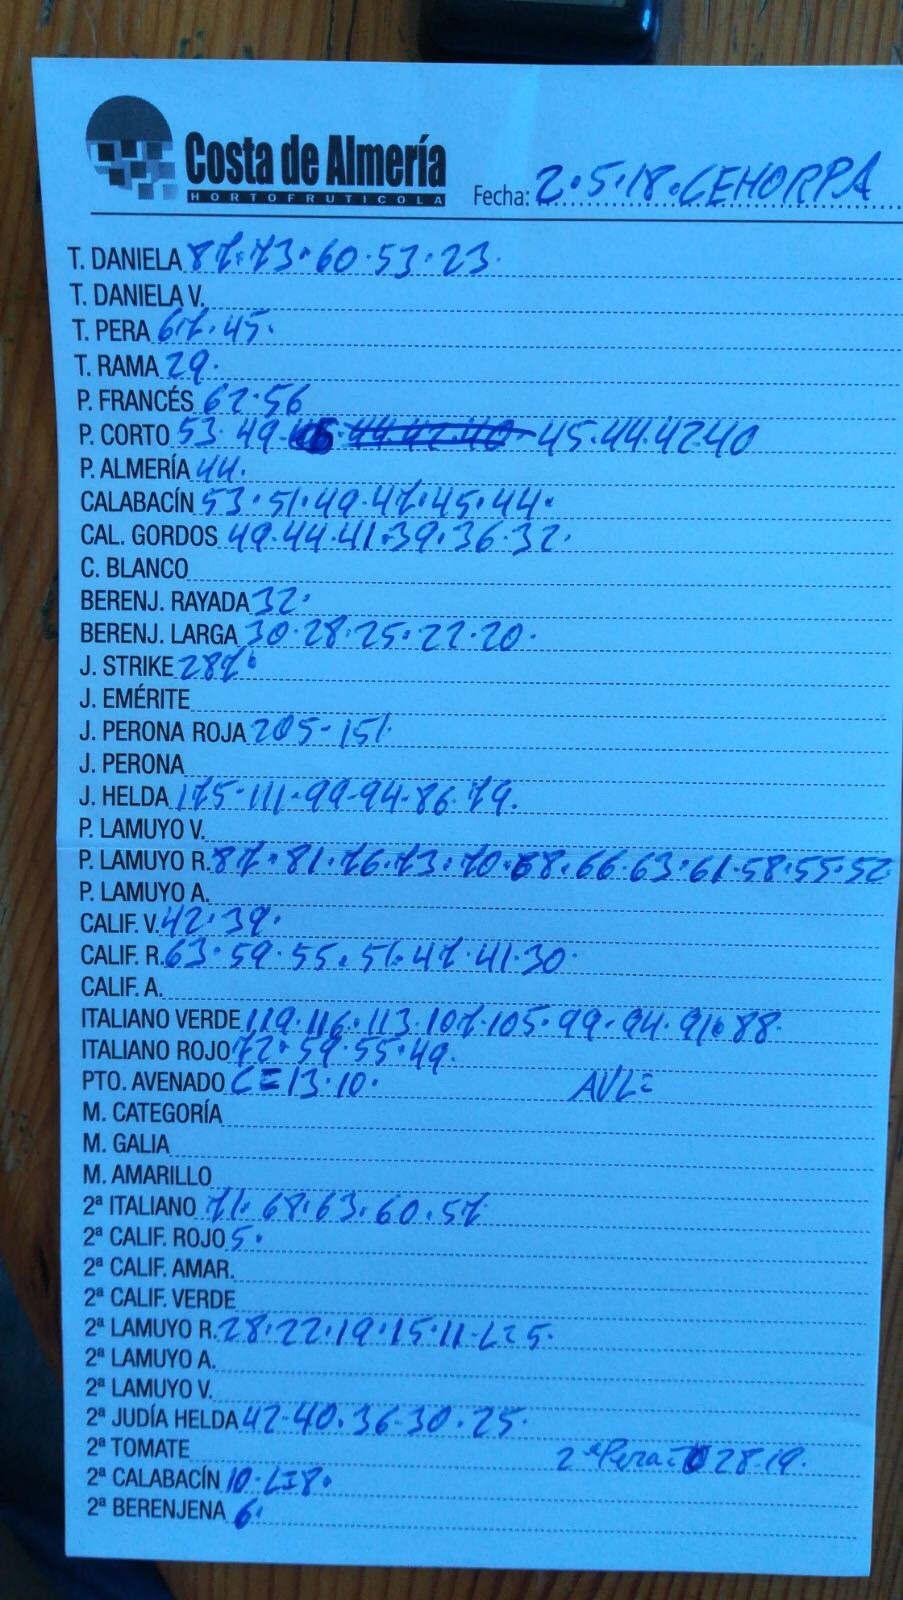 Costa de Almería
HORTOFRUTICOLA
Fecha: 2.5.18. CEHORPA
T. DANIELA 87.73.60.53.23.
T. DANIELA V.
T. PERA 67.45.
T. RAMA 29.
P. FRANCÉS 62.56
P. CORTO 53.49. 44.42.40. 45.44.42.40
P. ALMERÍA 44.
CALABACÍN 53.51.49.47.45.44.
CAL. GORDOS 49.44.41.39.36.32.
C. BLANCO
BERENJ. RAYADA 32.
BERENJ. LARGA 30.28.25.22.20.
J. STRIKE 287.
J. EMÉRITE
J. PERONA ROJA 205-151.
J. PERONA
J. HELDA 175-111-99-94-86.79.
P. LAMUYO V.
P. LAMUYO R. 87.81.76.73.70.68.66.63.61.58.55.52
P. LAMUYO A.
CALIF. V. 42.39.
CALIF. R. 63.59.55.51.47.41.30.
CALIF. A.
ITALIANO VERDE 119.116.113.107.105.99.94.91.88.
ITALIANO ROJO 72.59.55.49.
PTO. AVENADO C=13.10. AVL=
M. CATEGORÍA
M. GALIA
M. AMARILLO
2ª ITALIANO 71.68.63.60.57
2ª CALIF. ROJO 5.
2ª CALIF. AMAR.
2ª CALIF. VERDE
2ª LAMUYO R. 28.22.19.15.11-L=5.
2ª LAMUYO A.
2ª LAMUYO V.
2ª JUDÍA HELDA 42-40.36-30.25.
2ª TOMATE 2ª Pera= 28.19.
2ª CALABACÍN 10-L=8.
2ª BERENJENA 6.